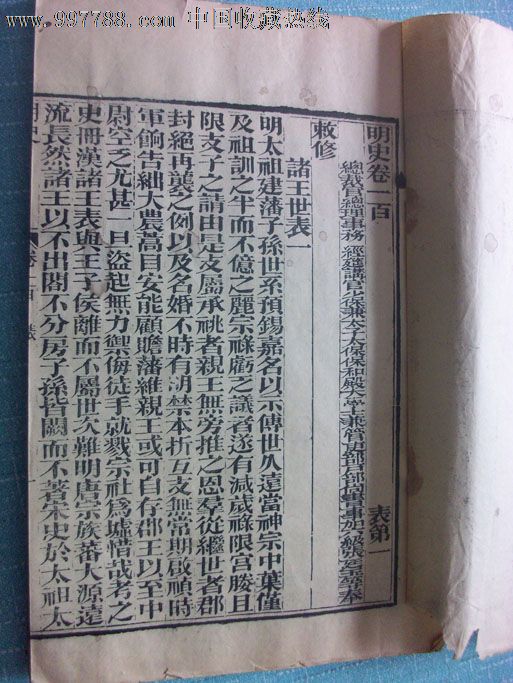 www.997788.com 中国收藏热线
明史卷一百 表第一
總裁官總理事務 經筵講官少保兼太子太保保和殿大學士兼管吏部戶部尚書事加六級張廷玉等奉
敕修
諸王世表一
明太祖建藩子孫世系預錫嘉名以示傳世久遠當神宗中葉僅
及祖訓之半而不億之麗宗祿虧之議者遂有減歲祿限宮媵且
限支子之請由是支屬承祧者親王無旁推之恩羣從繼世者郡
封絕再襲之例以及名婚不時有明禁本折互支無常期啟禎時
軍餉告絀大農蒿目安能顧贍藩維親王或可自存郡王以至中
尉空乏尤甚一旦盜起無力禦侮徒手就戮宗社為墟惜哉考之
史冊漢諸王表與王子侯離而不屬世次難明唐宗族蕃大源遠
流長然諸王以不出閣不分房子孫皆闕而不著宋史於太祖太
明史 卷一百 表 一